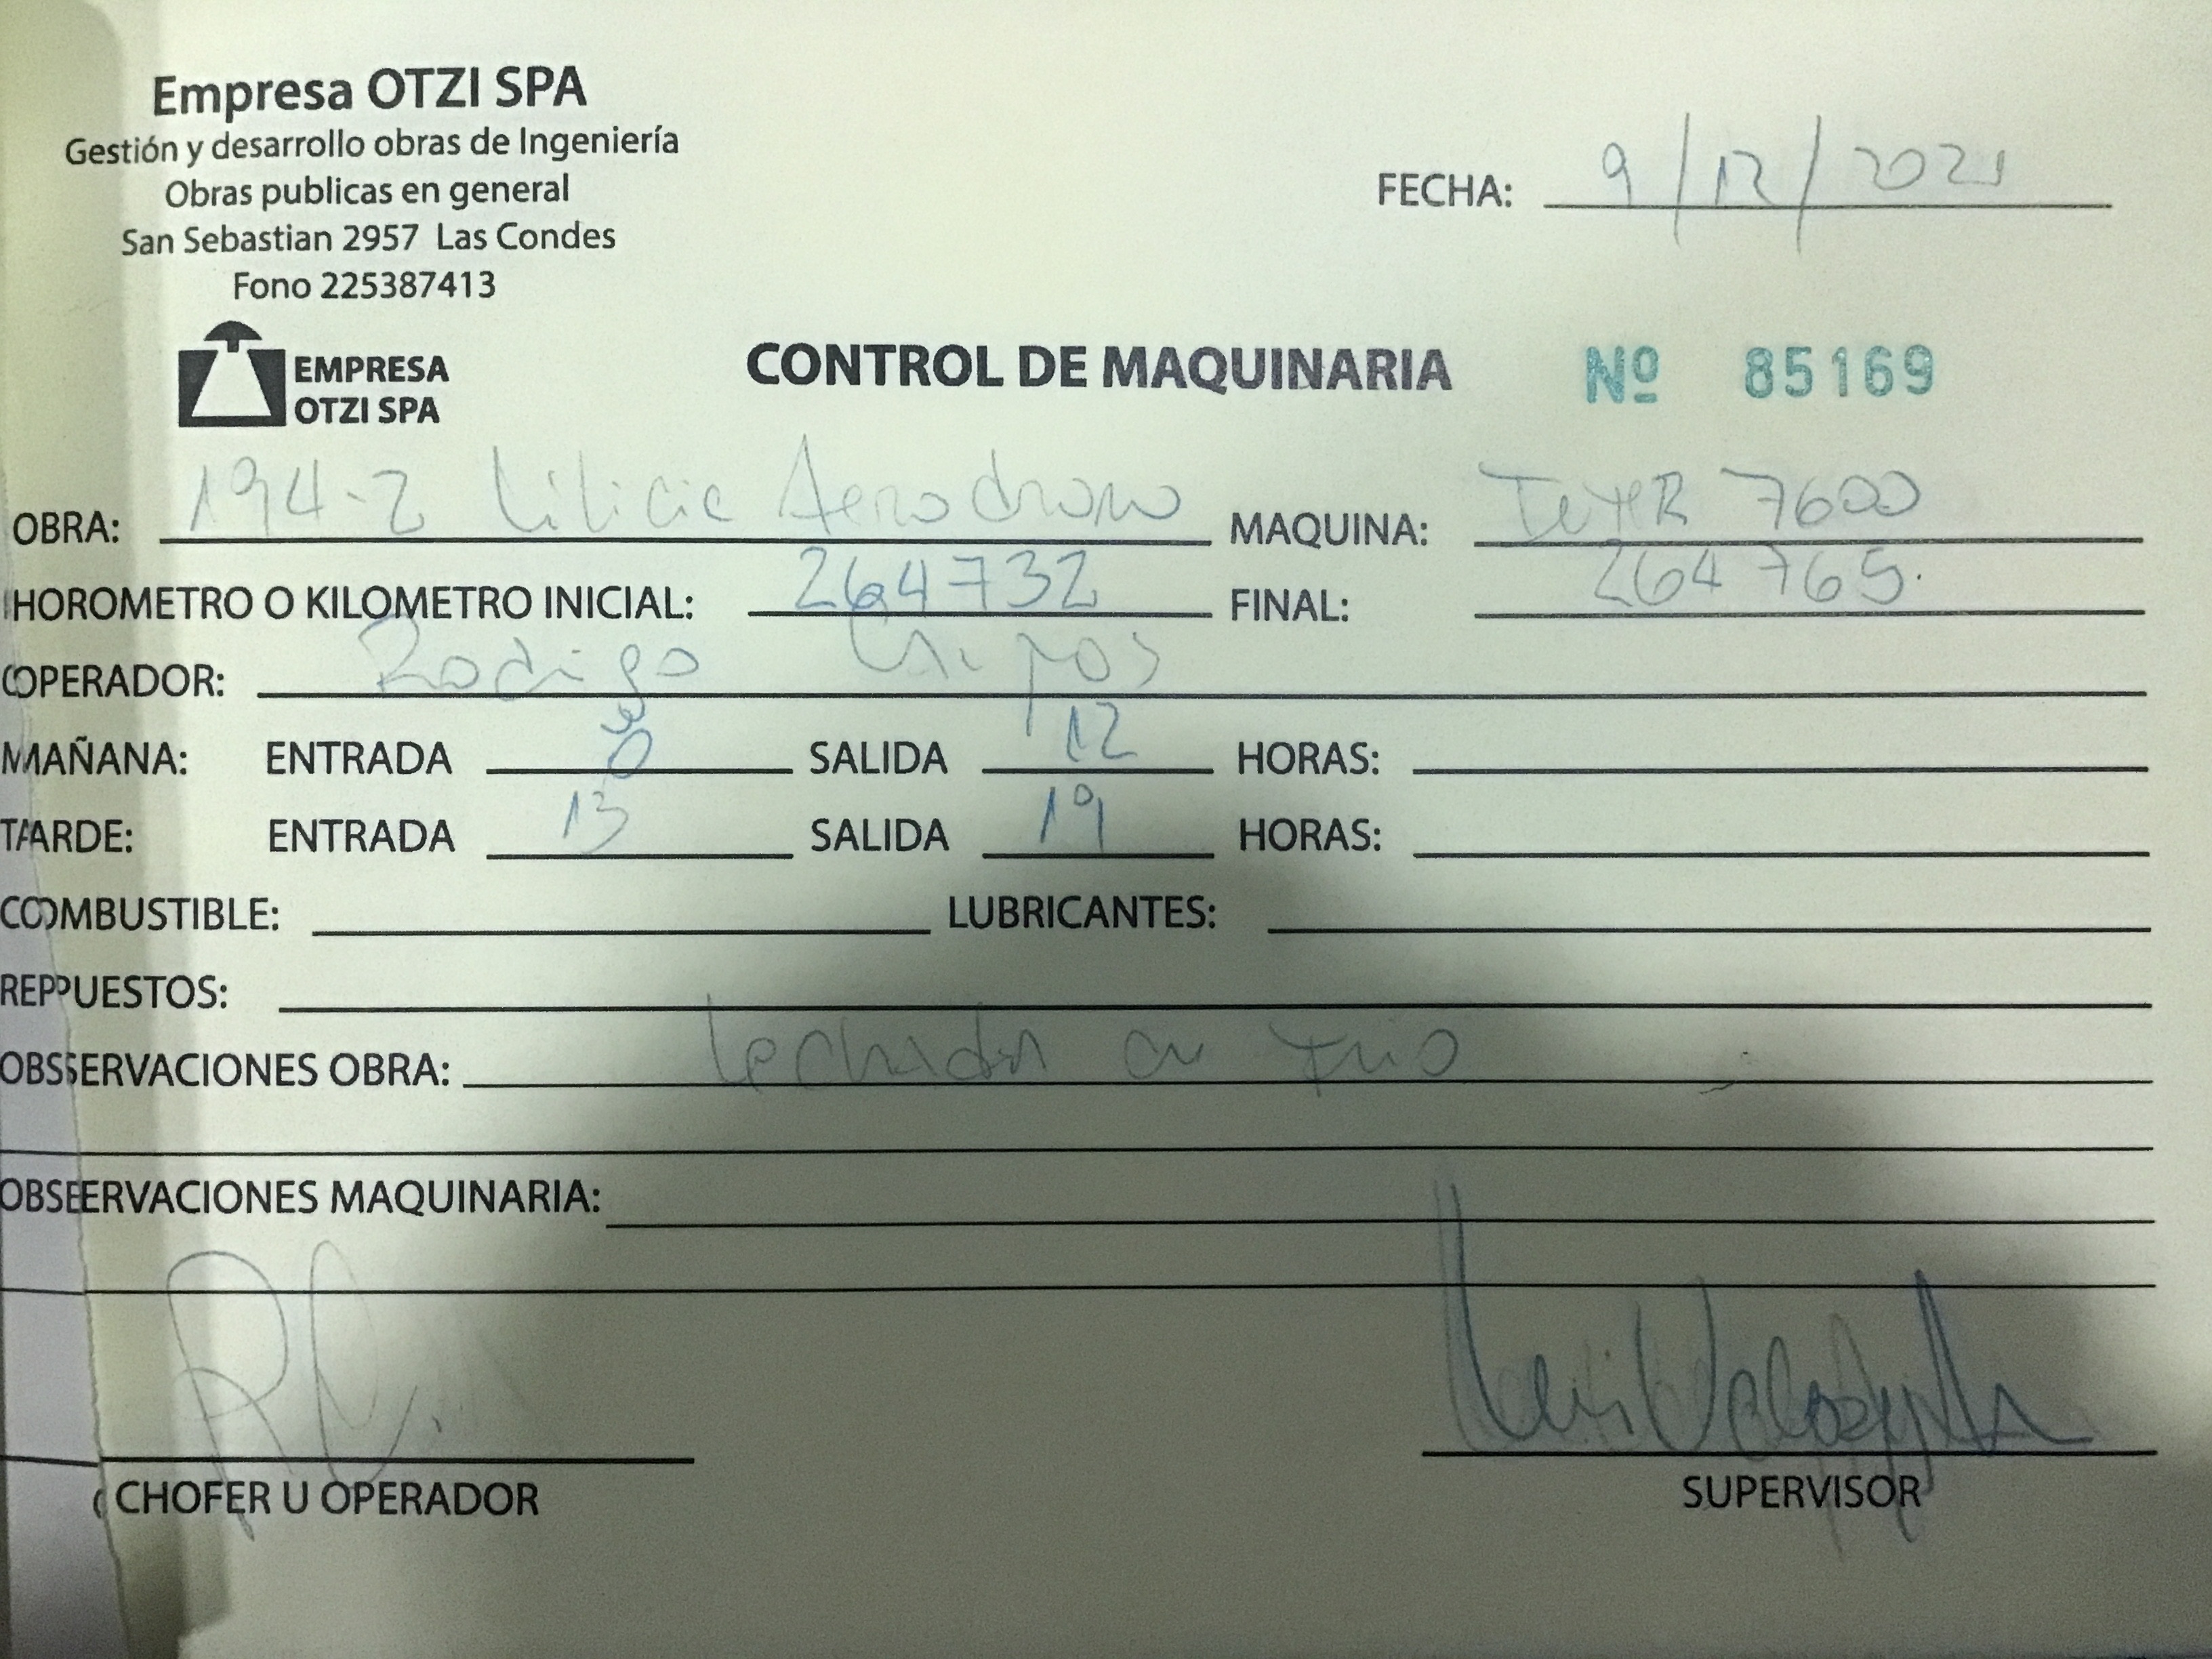 Empresa OTZI SPA
Gestión y desarrollo obras de Ingeniería
Obras publicas en general
San Sebastian 2957 Las Condes
Fono 225387413
FECHA: 9/12/2021
EMPRESA
OTZI SPA
CONTROL DE MAQUINARIA Nº 85169
OBRA: 194-2 MAQUINA: 7600
HOROMETRO O KILOMETRO INICIAL: 264732 FINAL: 264765.
OPERADOR: Rodrigo Campos
MAÑANA: ENTRADA 8 SALIDA 12 HORAS:
TARDE: ENTRADA 13 SALIDA 19 HORAS:
COMBUSTIBLE: LUBRICANTES:
REPUESTOS:
OBSERVACIONES OBRA: en
OBSERVACIONES MAQUINARIA:
CHOFER U OPERADOR SUPERVISOR